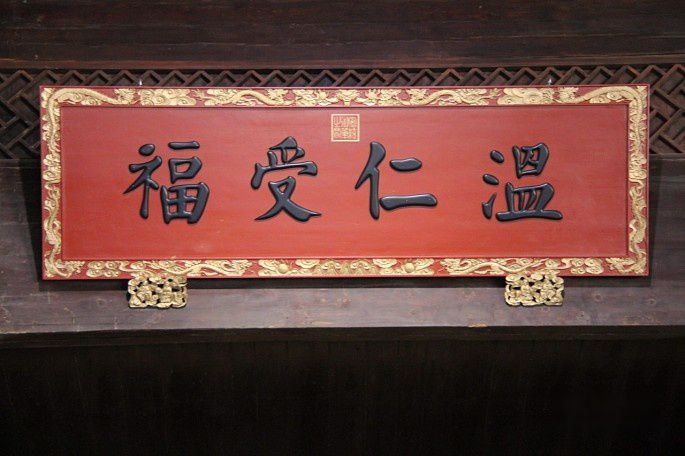 溫仁受福